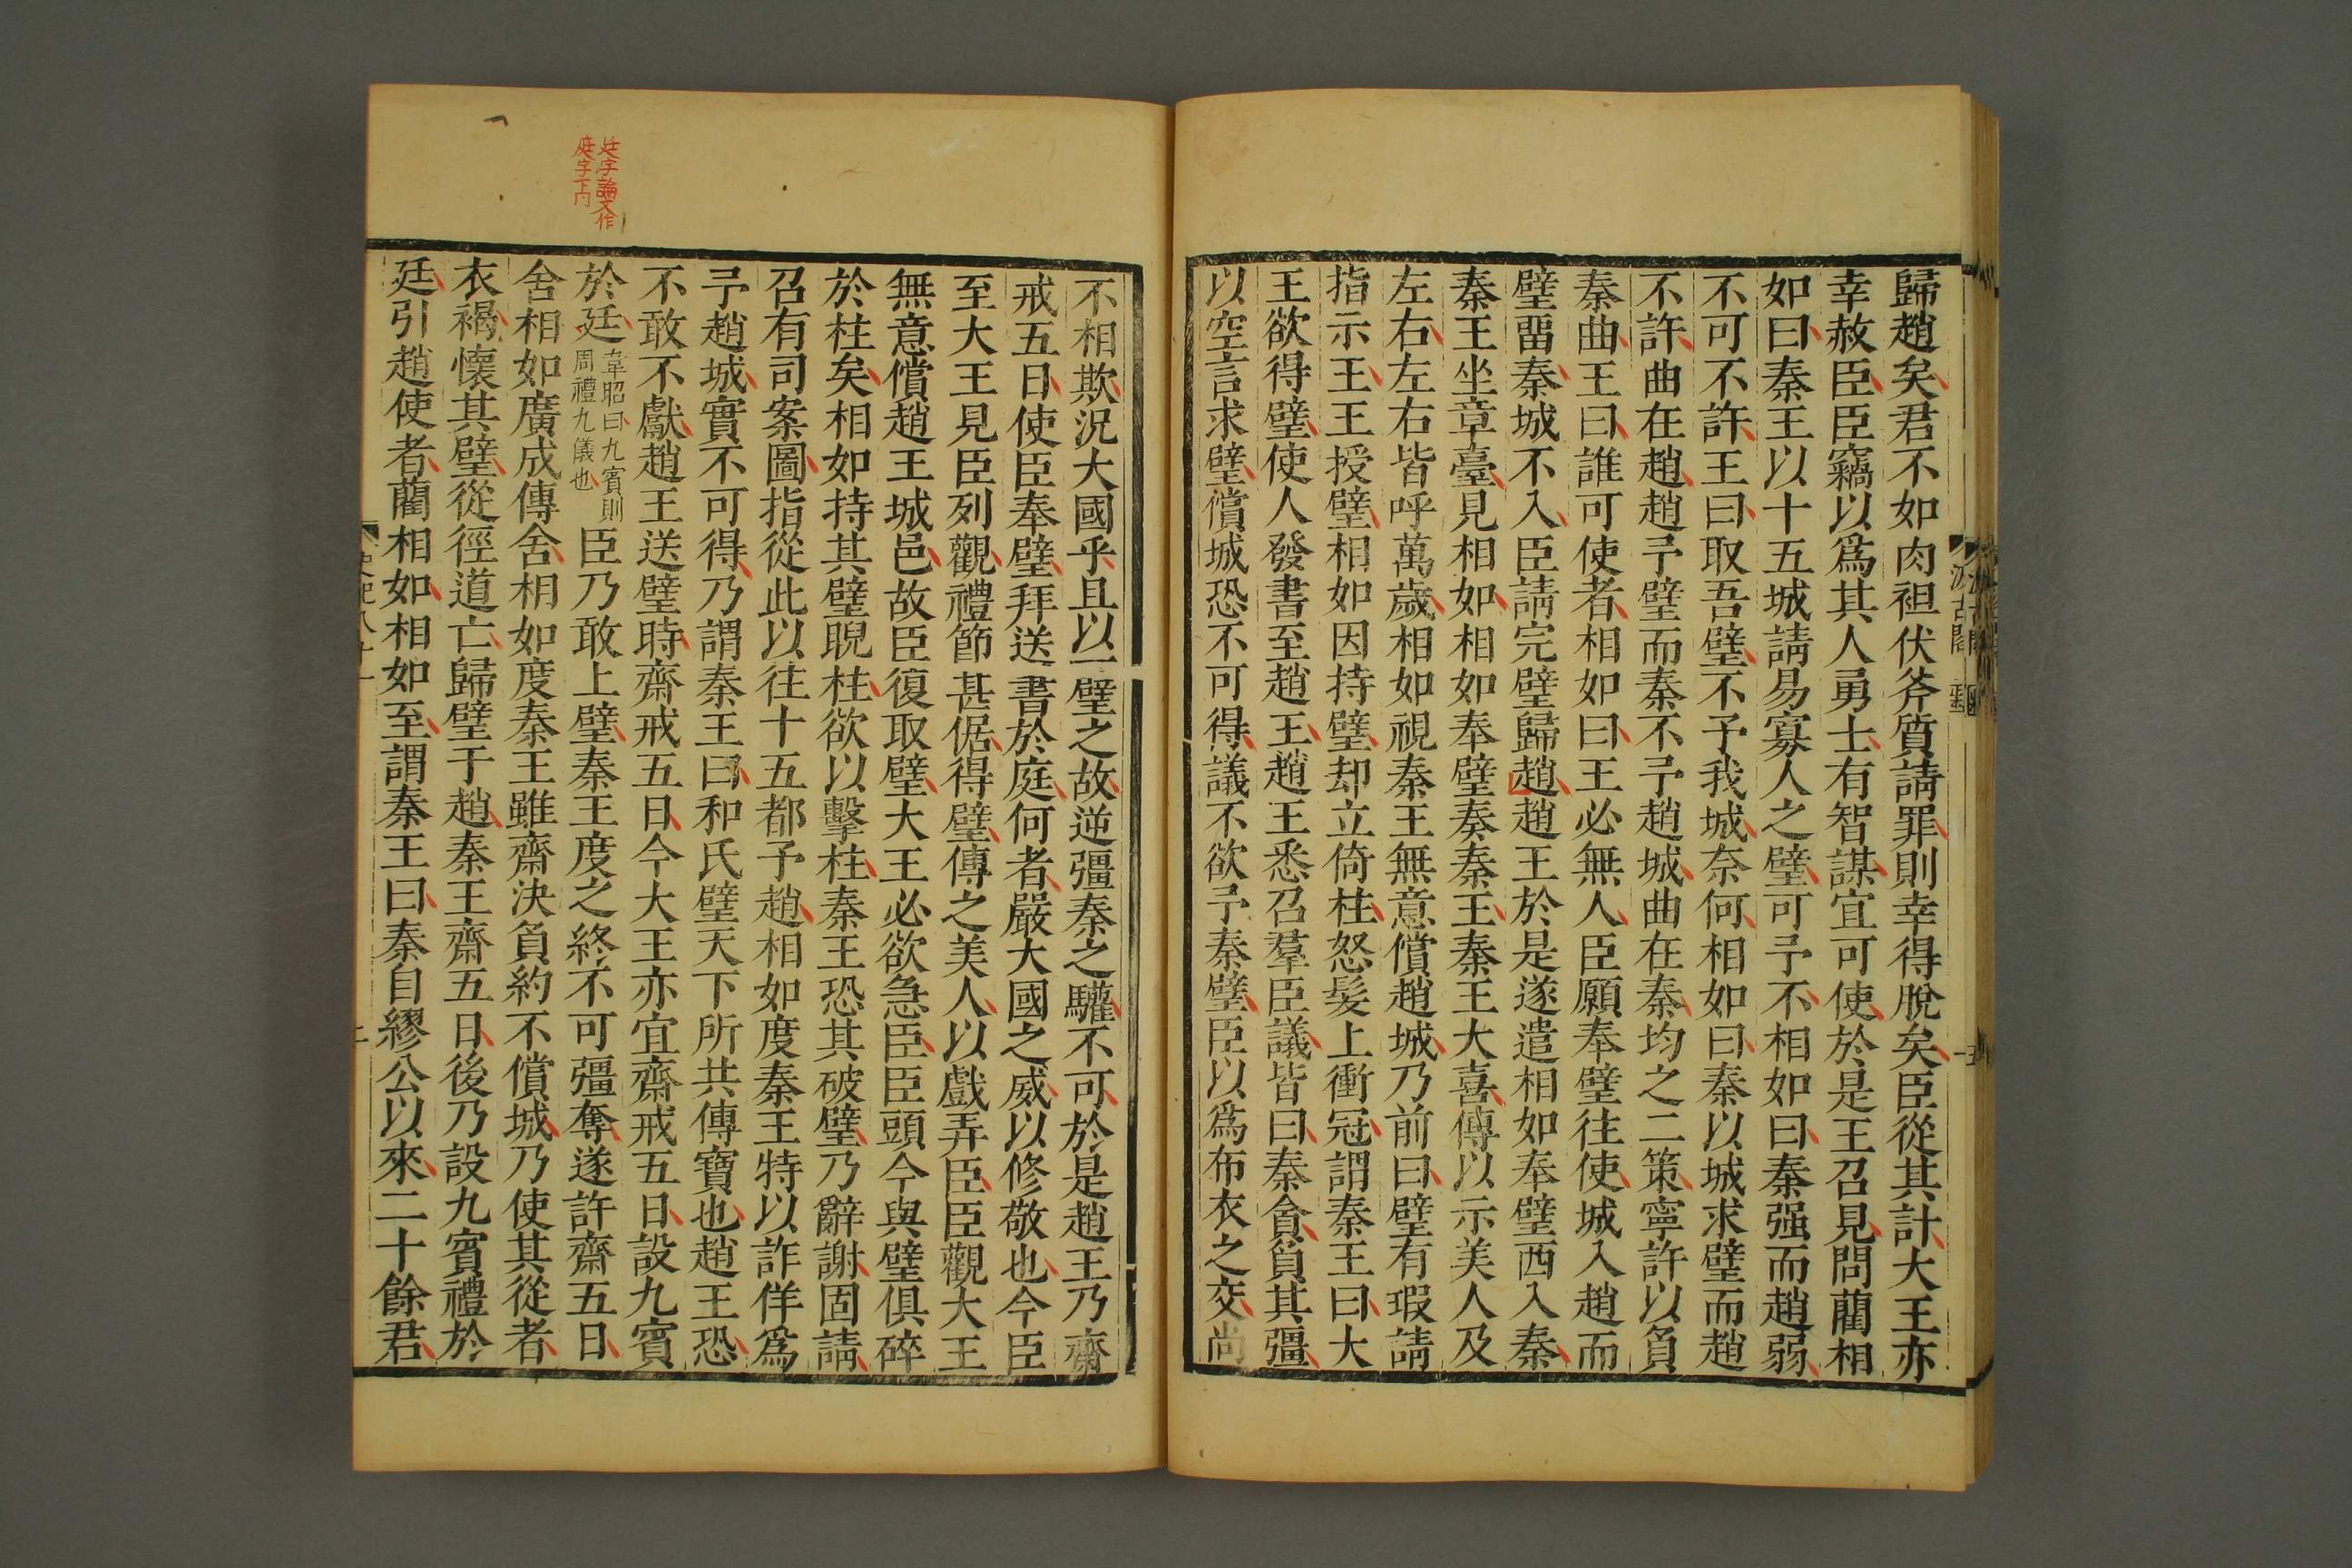 歸趙矣君不如肉袒伏斧質請罪則幸得脫矣臣從其計大王亦
幸赦臣臣竊以爲其人勇士有智謀宜可使於是王召見問藺相
如曰秦王以十五城請易寡人之璧可予不相如曰秦强而趙弱
不可不許王曰取吾璧不予我城奈何相如曰秦以城求璧而趙
不許曲在趙趙予璧而秦不予趙城曲在秦均之二策寧許以負
秦曲王曰誰可使者相如曰王必無人臣願奉璧往使城入趙而
璧畱秦城不入臣請完璧歸趙趙王於是遂遣相如奉璧西入秦
秦王坐章臺見相如相如奉璧奏秦王秦王大喜傳以示美人及
左右左右皆呼萬歲相如視秦王無意償趙城乃前曰璧有瑕請
指示王王授璧相如因持璧却立倚柱怒髮上衝冠謂秦王曰大
王欲得璧使人發書至趙王趙王悉召羣臣議皆曰秦貪負其彊
以空言求璧償城恐不可得議不欲予秦璧臣以爲布衣之交尚
不相欺況大國乎且以一璧之故逆彊秦之驩不可於是趙王乃齋
戒五日使臣奉璧拜送書於庭何者嚴大國之威以修敬也今臣
至大王見臣列觀禮節甚倨得璧傳之美人以戲弄臣臣觀大王
無意償趙王城邑故臣復取璧大王必欲急臣臣頭今與璧俱碎
於柱矣相如持其璧睨柱欲以擊柱秦王恐其破璧乃辭謝固請
召有司案圖指從此以往十五都予趙相如度秦王特以詐佯爲
予趙城實不可得乃謂秦王曰和氏璧天下所共傳寶也趙王恐
不敢不獻趙王送璧時齋戒五日今大王亦宜齋戒五日設九賓
於廷韋昭曰九賓則周禮九儀也臣乃敢上璧秦王度之終不可彊奪遂許齋五日
舍相如廣成傳舍相如度秦王雖齋決負約不償城乃使其從者
衣褐懷其璧從徑道亡歸璧于趙秦王齋五日後乃設九賓禮於
廷引趙使者藺相如相如至謂秦王曰秦自繆公以來二十餘君
廷字論文作
庭字下同
汲古閣
史記八十一